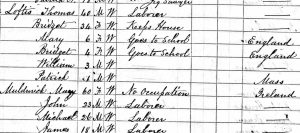 Loftis Thomas 40 M W Laborer
Bridget 34 F W Keeps House
Mary 6 F W Goes to School England
Bridget 4 F W Goes to School England
William 3 M W
Patrick M W Mass
Muldwick Mary 60 F W No Occupation Ireland
John 23 M W Laborer
Michael 26 M W Laborer
James 18 M W Laborer